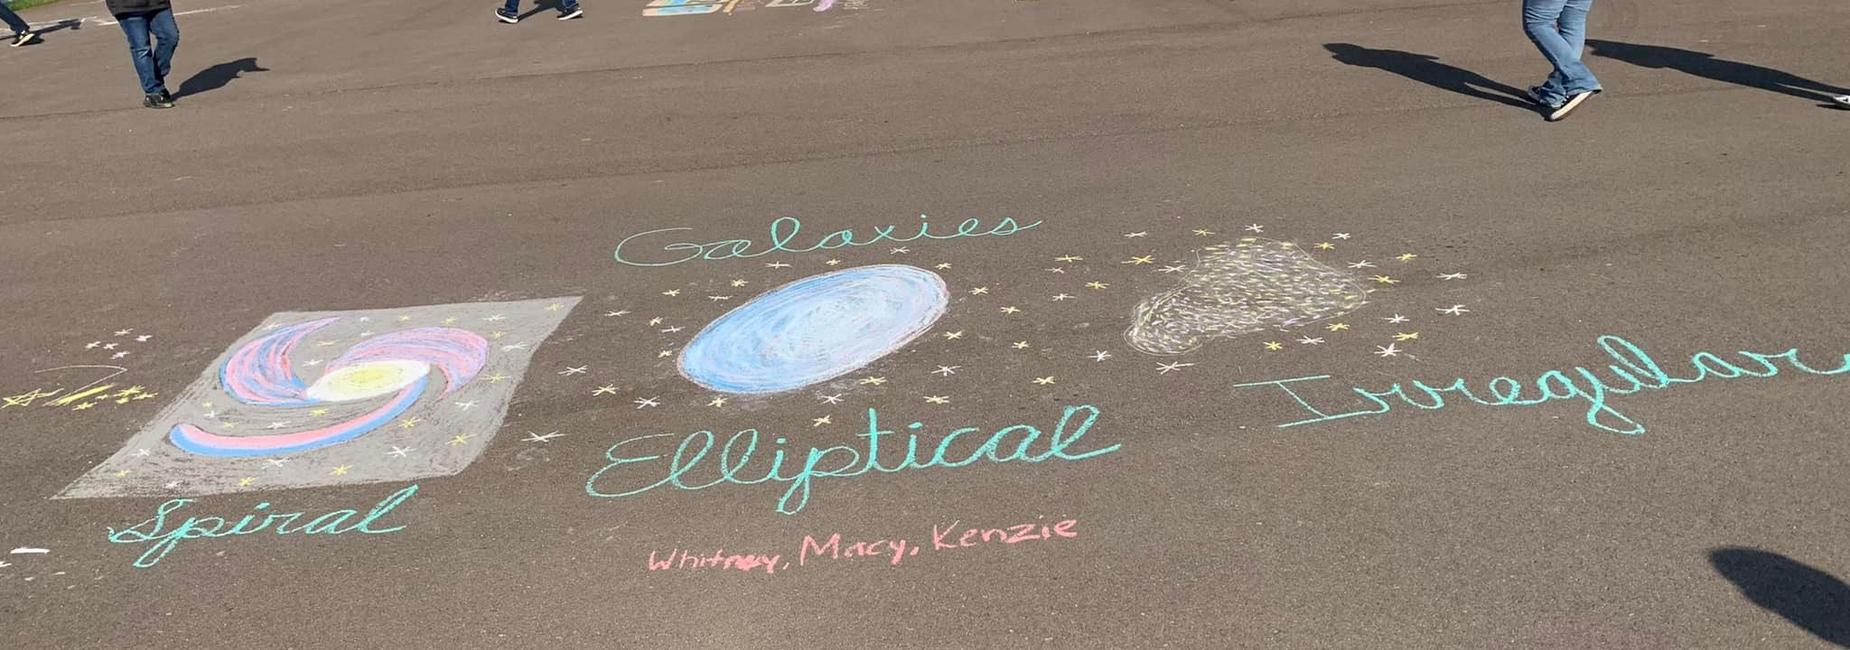 Galaxies
Spiral
Elliptical
Irregular
Whitney, Macy, Kenzie